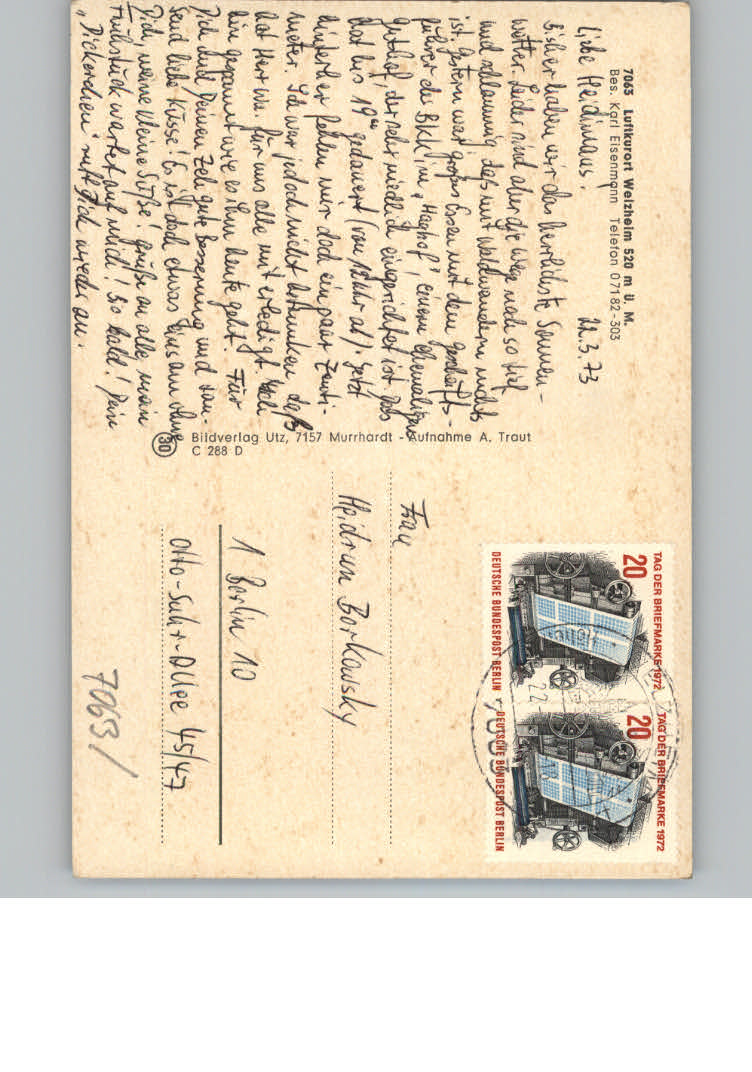 7063 Luftkurort Welzheim 520 m ü. M.
Bes. Karl Eisenmann Telefon 07182-303
Liebe Heidimaus! 22.3.73
Bisher haben wir das herrlichste Sonnen-
wetter. Leider sind aber die Wege noch so tief
und schlammig, daß mit Waldwandern nichts
ist. Gestern war großes Essen mit dem Geschäfts-
führer der BKK im „Haghof“, einem ehemaligen
Gutshof, der sehr niedlich eingerichtet ist. Das
hat bis 19⁰⁰ gedauert (von Uhr ab). Jetzt
hinterher fehlen mir doch ein paar Zenti-
meter. Ich war jedoch nicht betrunken, das
hat Herr für uns alle mit erledigt. Bin
gespannt wie es ihm heute geht. Für
Dich und Deinen Zeh gute Besserung und tau-
send liebe Küsse! Es ist doch etwas einsam ohne
Dich, meine kleine Süße! Grüße an alle, mein
Frühstück wartet auf mich! So bald! Dein
„Dickerchen“ ruft Dich wieder an.
30
Bildverlag Utz, 7157 Murrhardt - Aufnahme A. Traut
C 288 D
TAG DER BRIEFMARKE 1972
20
DEUTSCHE BUNDESPOST BERLIN
TAG DER BRIEFMARKE 1972
20
DEUTSCHE BUNDESPOST BERLIN
22.
Frau
Heidrun Borkowsky
1 Berlin 10
Otto-Suhr-Allee 45/47
7063/